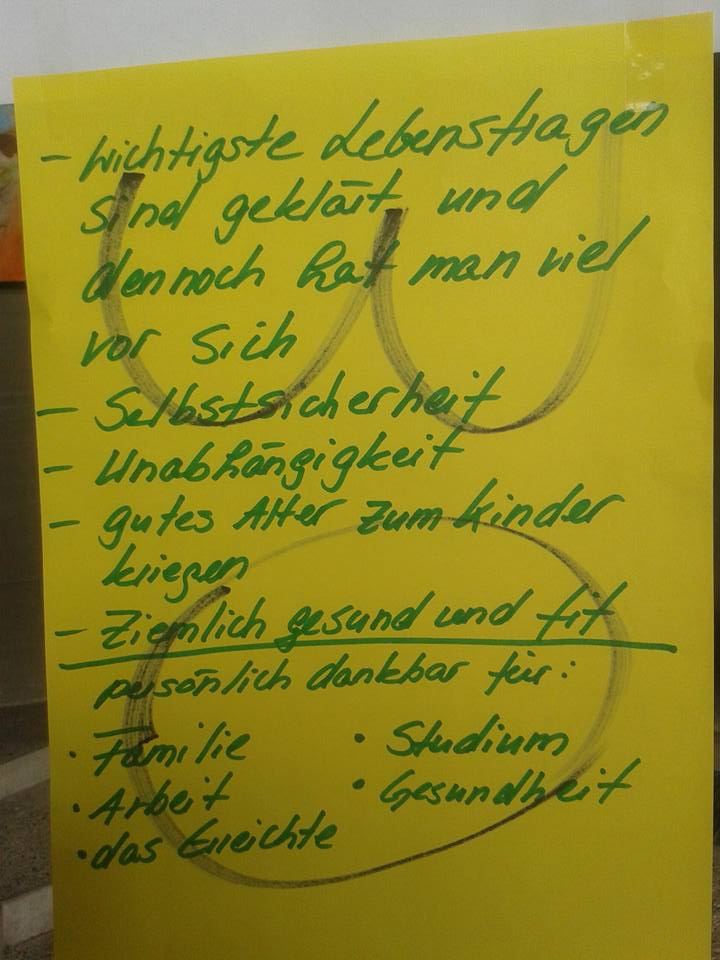 - wichtigste Lebensfragen
sind geklärt und
dennoch hat man viel
vor sich
- Selbstsicherheit
- Unabhängigkeit
- gutes Alter zum Kinder
kriegen
- Ziemlich gesund und fit
persönlich dankbar für:
· Familie · Studium
· Arbeit · Gesundheit
· das Erreichte